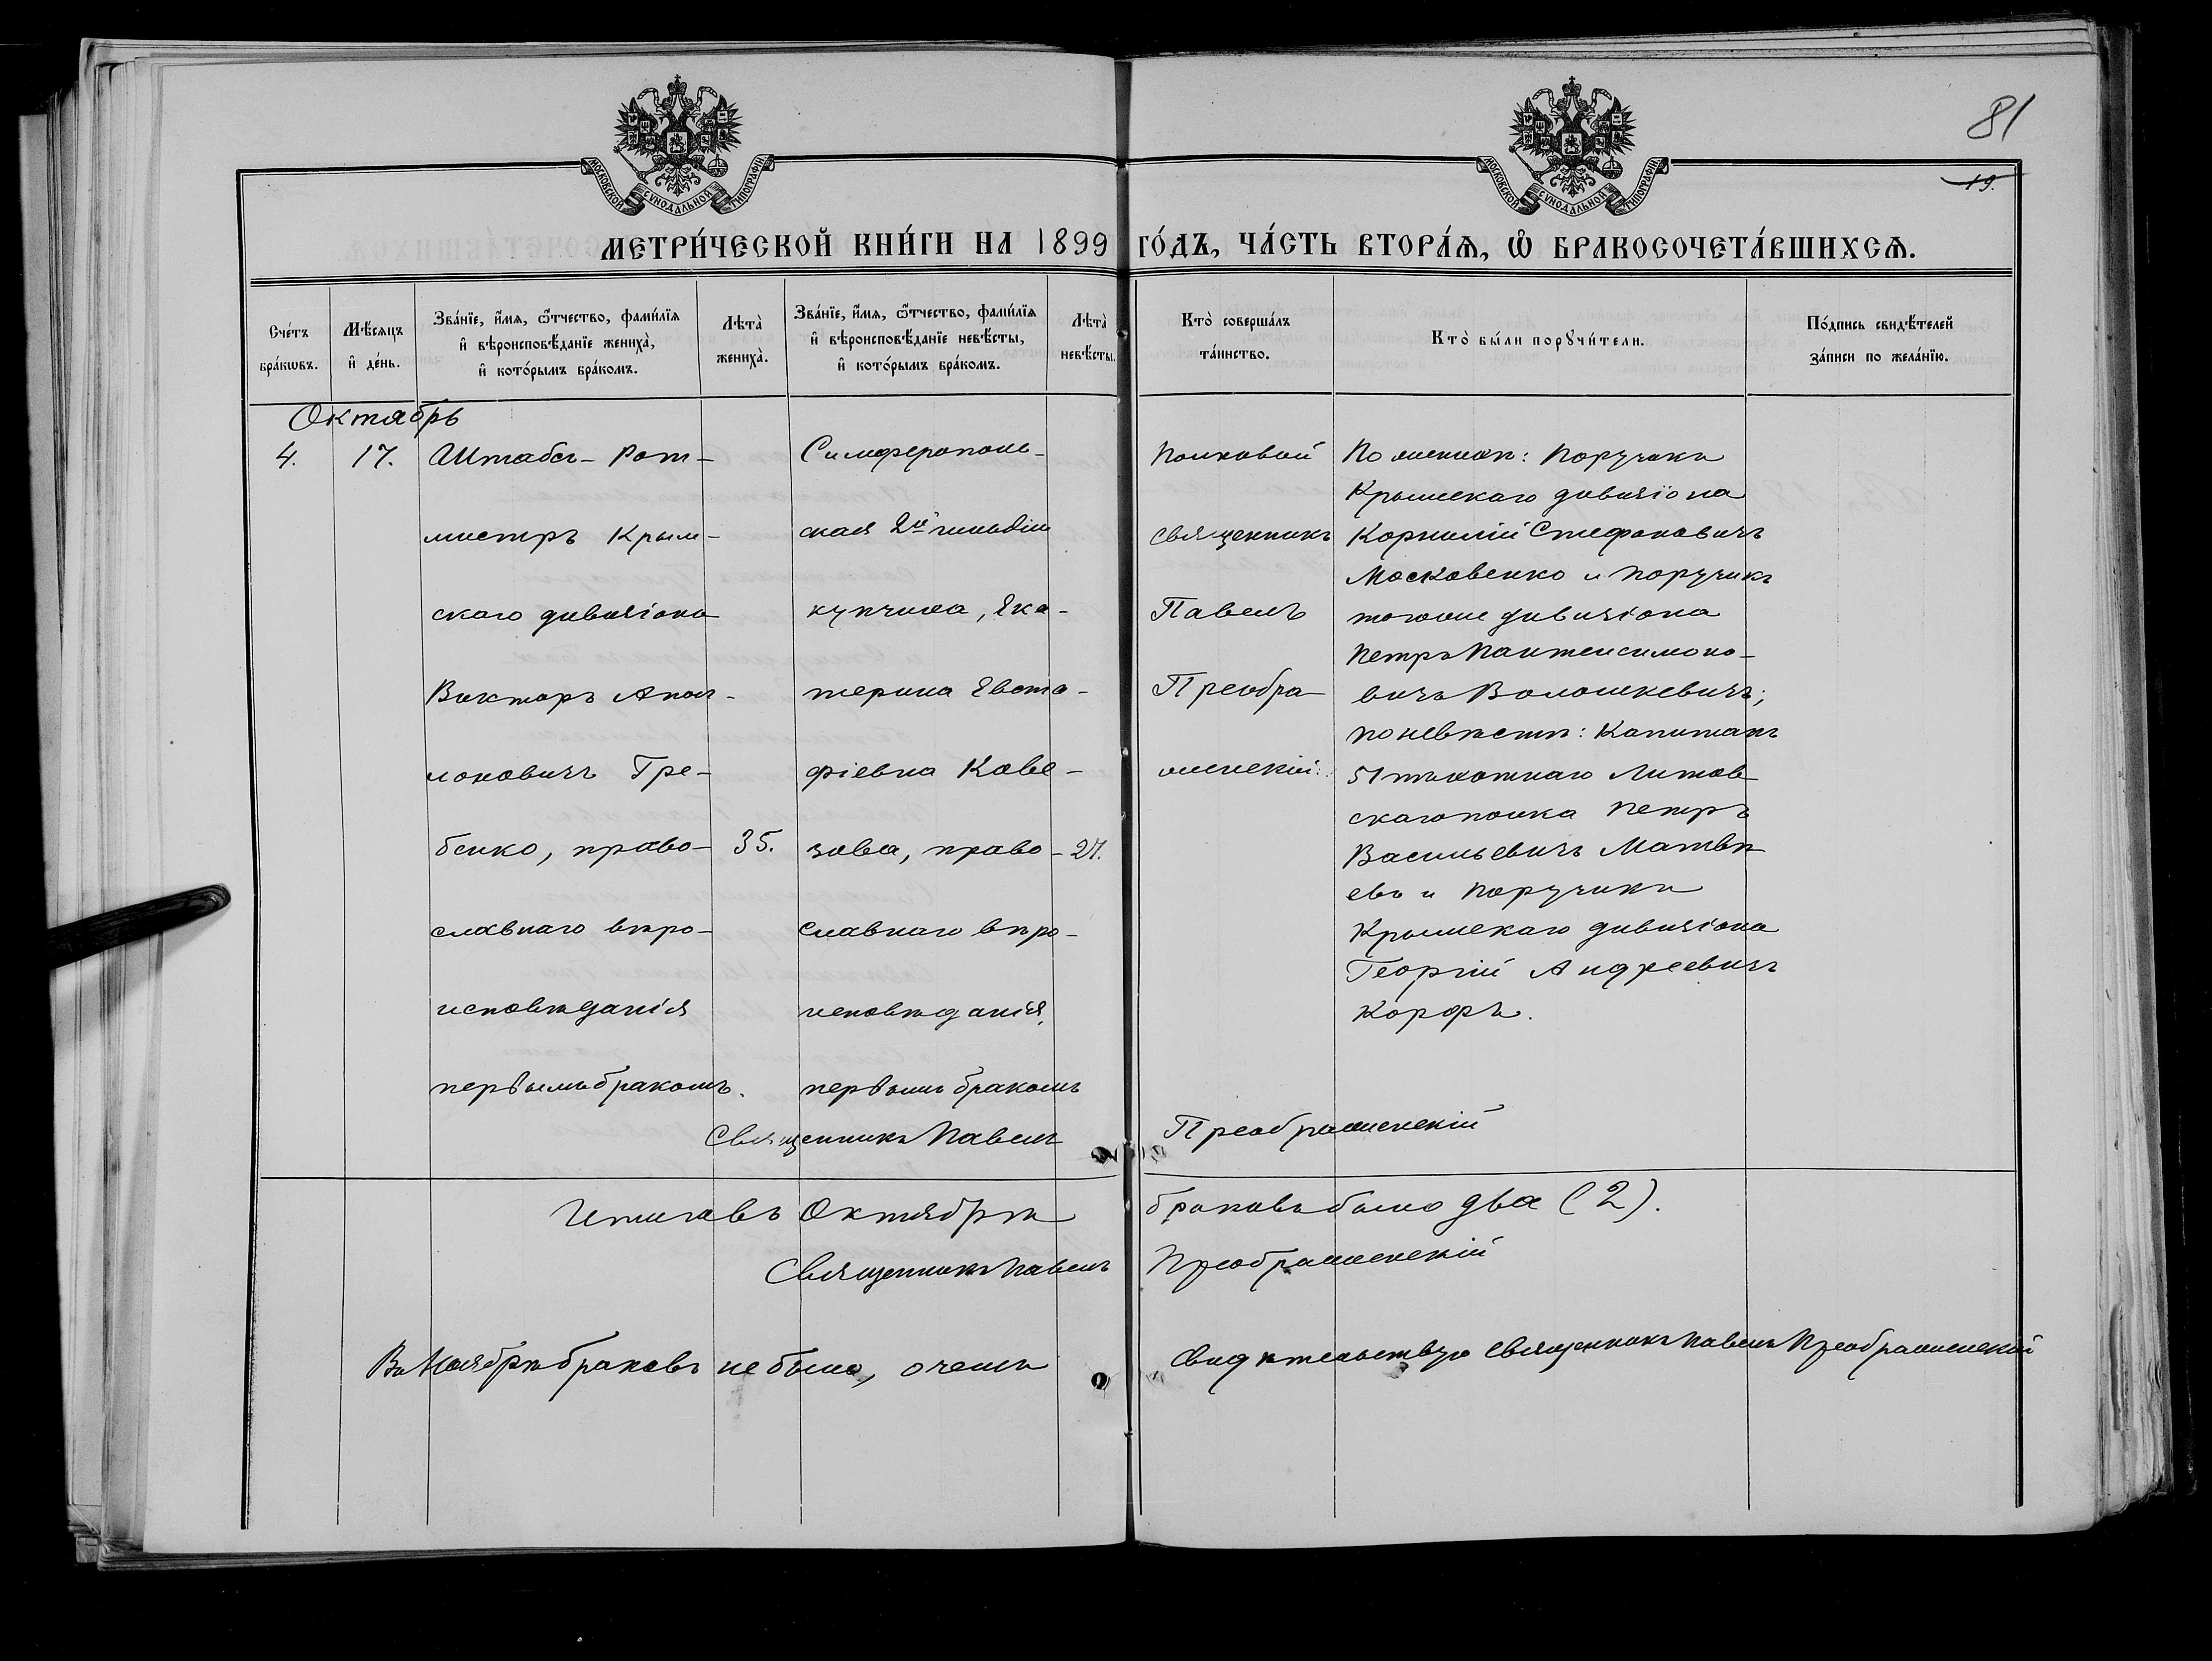 81
19.
МОСКОВСКОЙ СѴНОДАЛЬНОЙ ТИПОГРАФІИ
МОСКОВСКОЙ СѴНОДАЛЬНОЙ ТИПОГРАФІИ
МЕТРИ́ЧЕСКОЙ КНИ́ГИ НА 1899 ГО́ДЪ, ЧА́СТЬ ВТОРА́Ѧ, Ѽ БРАКОСОЧЕТА́ВШИХСѦ.
Сче́тъ
бра́кѡвъ.
Мѣ́сѧцъ
и҆ де́нь.
Зва́нїе, и҆́мѧ, ѻ҆́тчество, фами́лїѧ
и҆ вѣроисповѣ́данїе жениха̀,
и҆ кото́рымъ бра́комъ.
Лѣта̀
жениха̀.
Зва́нїе, и҆́мѧ, ѻ҆́тчество, фами́лїѧ
и҆ вѣроисповѣ́данїе невѣ́сты,
и҆ кото́рымъ бра́комъ.
Лѣта̀
невѣ́сты.
Кто̀ соверша́лъ
та́инство.
Кто̀ бы́ли порꙋчи́тели.
По́дпись свидѣ́телей
за́писи по жела́нїю.
Октябрь
4.
17.
Штабсъ-Рот-
мистръ Крым-
скаго дивизіона
Викторъ Апол-
лоновичъ Гре-
бенко, право-
славнаго вѣро-
исповѣданія
первымъ бракомъ.
35.
Симферополь-
ская 2й гильдіи
купчиха, Ека-
терина Евста-
фіевна Каве-
зова, право-
славнаго вѣро-
исповѣданія,
первымъ бракомъ
27.
Полковой
священникъ
Павелъ
Преобра
женскій.
По женихѣ: Поручикъ
Крымскаго дивизіона
Корнилій Стефановичъ
Московенко и поручикъ
тогоже дивизіона
Петръ Пантелеимоно-
вичъ Волошкевичъ;
по невѣстѣ: Капитанъ
51 пѣхотнаго Литов
скаго полка Петръ
Васильевичъ Матвѣ
евъ и поручикъ
Крымскаго дивизіона
Георгій Андреевичъ
Корфъ.
Священникъ Павелъ Преображенскій
Итого въ Октябрѣ браковъ было два (2).
Священникъ Павелъ Преображенскій
Въ Ноябрѣ браковъ не было, о чемъ свидѣтельствую священникъ Павелъ Преображенскій